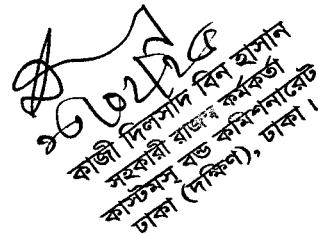 ১৩/০২/২৫
কাজী দিলসাদ বিন হাসান
সহকারী রাজস্ব কর্মকর্তা
কাস্টমস্ বন্ড কমিশনারেট
ঢাকা (দক্ষিণ), ঢাকা।